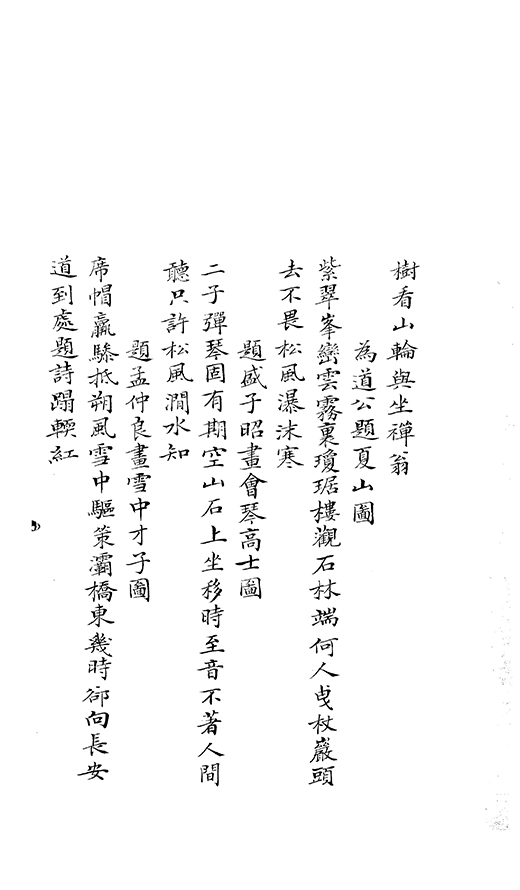 樹看山輪與坐禪翁
為道公題夏山圖
紫翠峯巒雲霧裏瓊琚樓觀石林端何人曵杖巖頭
去不畏松風瀑沫寒
題盛子昭畫會琴高士圖
二子彈琴固有期空山石上坐移時至音不著人間
聽只許松風澗水知
題孟仲良畫雪中才子圖
席帽羸驂抵朔風雪中驅策灞橋東幾時卻向長安
道到處題詩蹋輭紅